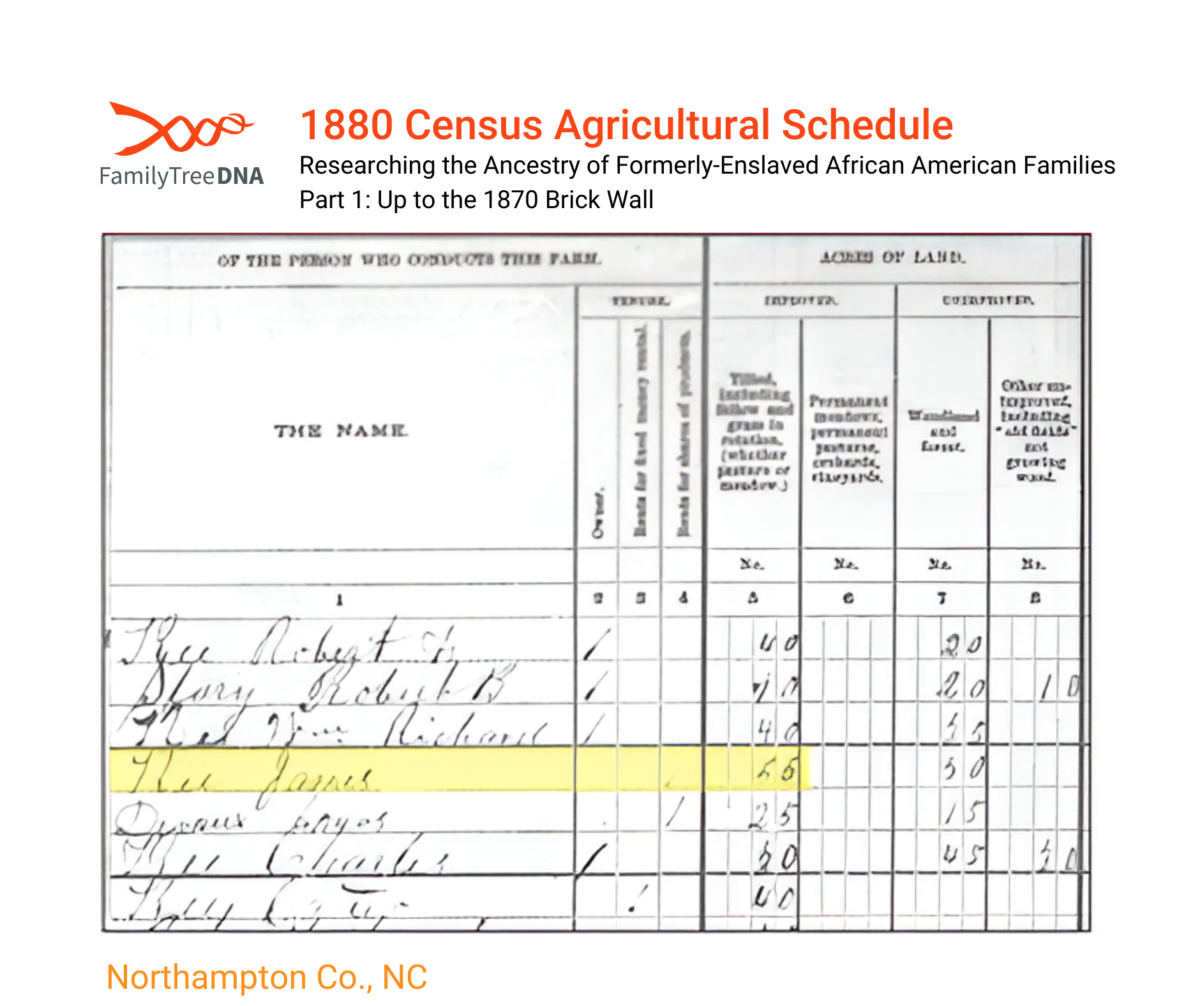 FamilyTreeDNA
1880 Census Agricultural Schedule
Researching the Ancestry of Formerly-Enslaved African American Families
Part 1: Up to the 1870 Brick Wall
OF THE PERSON WHO CONDUCTS THIS FARM.
ACRES OF LAND.
TENURE.
THE NAME.
Owner.
Rents for fixed money rental.
Rents for shares of products.
Tilled,
including
fallow and
grass in
rotation,
(whether
pasture or
meadow.)
Permanent
meadows,
permanent
pastures,
orchards,
vineyards.
Woodland
and
forest.
Other un-
improved,
including
"old fields"
and
growing
wood.
No. No. No. No.
1 2 3 4 5 6 7 8
Robert 40 20
Story Robert B 20 10
Wm Richard 40
Kee James
25 15
Kee Charles 45
40
Northampton Co., NC